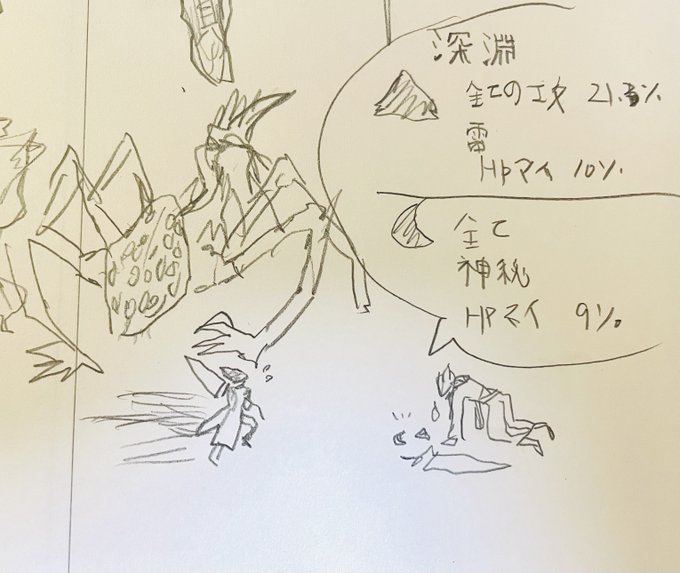 深淵
全ての攻 21.3%
雷
HPマイ 10%
全て
神秘
HPマイ 9%